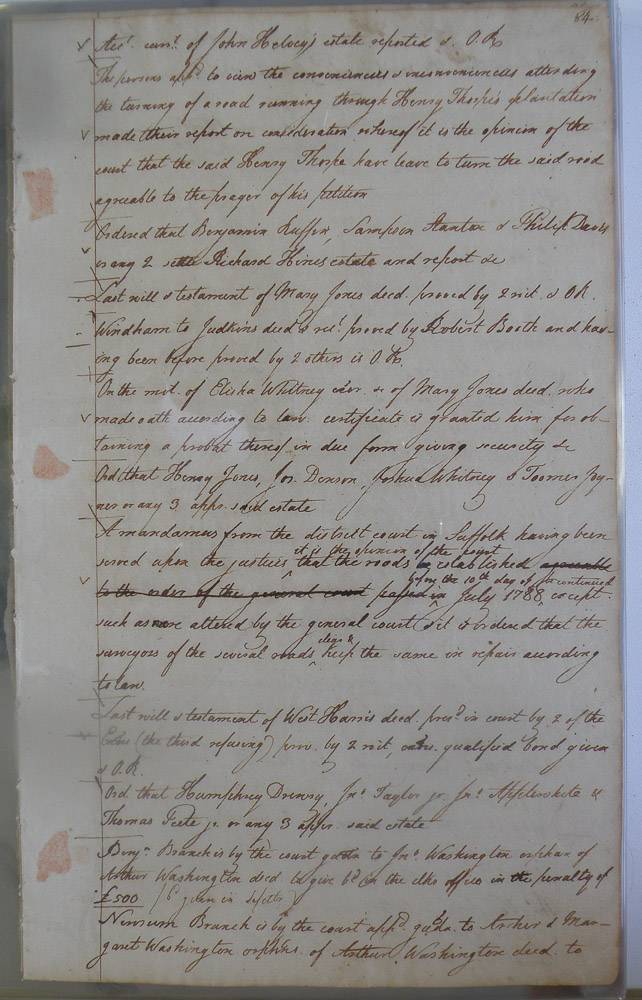 84.
Acct. curr.t of John Helvey's estate reported & O.R.
The persons app.d to view the conveniencies & inconveniencies attending
the turning of a road running through Henry Thorpe's plantation
made their report on consideration whereof it is the opinion of the
court that the said Henry Thorpe have leave to turn the said road
agreeable to the prayer of his petition
Ordered that Benjamin Ruffin, Sampson Stanton & Philip Davis
or any 2 settle Richard Hines estate and report &c
Last will & testament of Mary Jones deced. proved by 2 wit. & O R.
Windham to Judkins deed & rec.t proved by Robert Booth and hav-
ing been before proved by 2 others is O R.
On the mot. of Elisha Whitney exor. &c of Mary Jones deced. who
made oath according to law. certificate is granted him for ob-
taining a probat thereof in due form giving security &c
Ord that Henry Jones, Jos. Denson, Joshua Whitney & Toomer Joy-
ner or any 3 appr. said estate
A mandamus from the district court in Suffolk having been
it is the opinion of the court
served upon the justices that the roads established agreeable
before the 10th day of be continued
to the order of the general court passed in July 1788, except
such as were altered by the general court & it is ordered that the
clear &
surveyors of the several roads keep the same in repair according
to law.
Last will & testament of West Harris deced. pres.d in court by 2 of the
Exors (the third refusing) prov. by 2 wit, qualified bond given
& O.R.
Ord that Humphrey Drewry, Jn.o Taylor jr. Jn.o Applewhite &
Thomas Peete jr. or any 3 appr. said estate
Benj.n Branch is by the court guardn to Jn.o Washington orphan of
Arthur Washington deced to give b.d in the clks office in the penalty of
£500 (b.d given in
Newsum Branch is by the court app.d guardn. to Arthur & Mar-
garet Washington orphns. of Arthur Washington deced. to